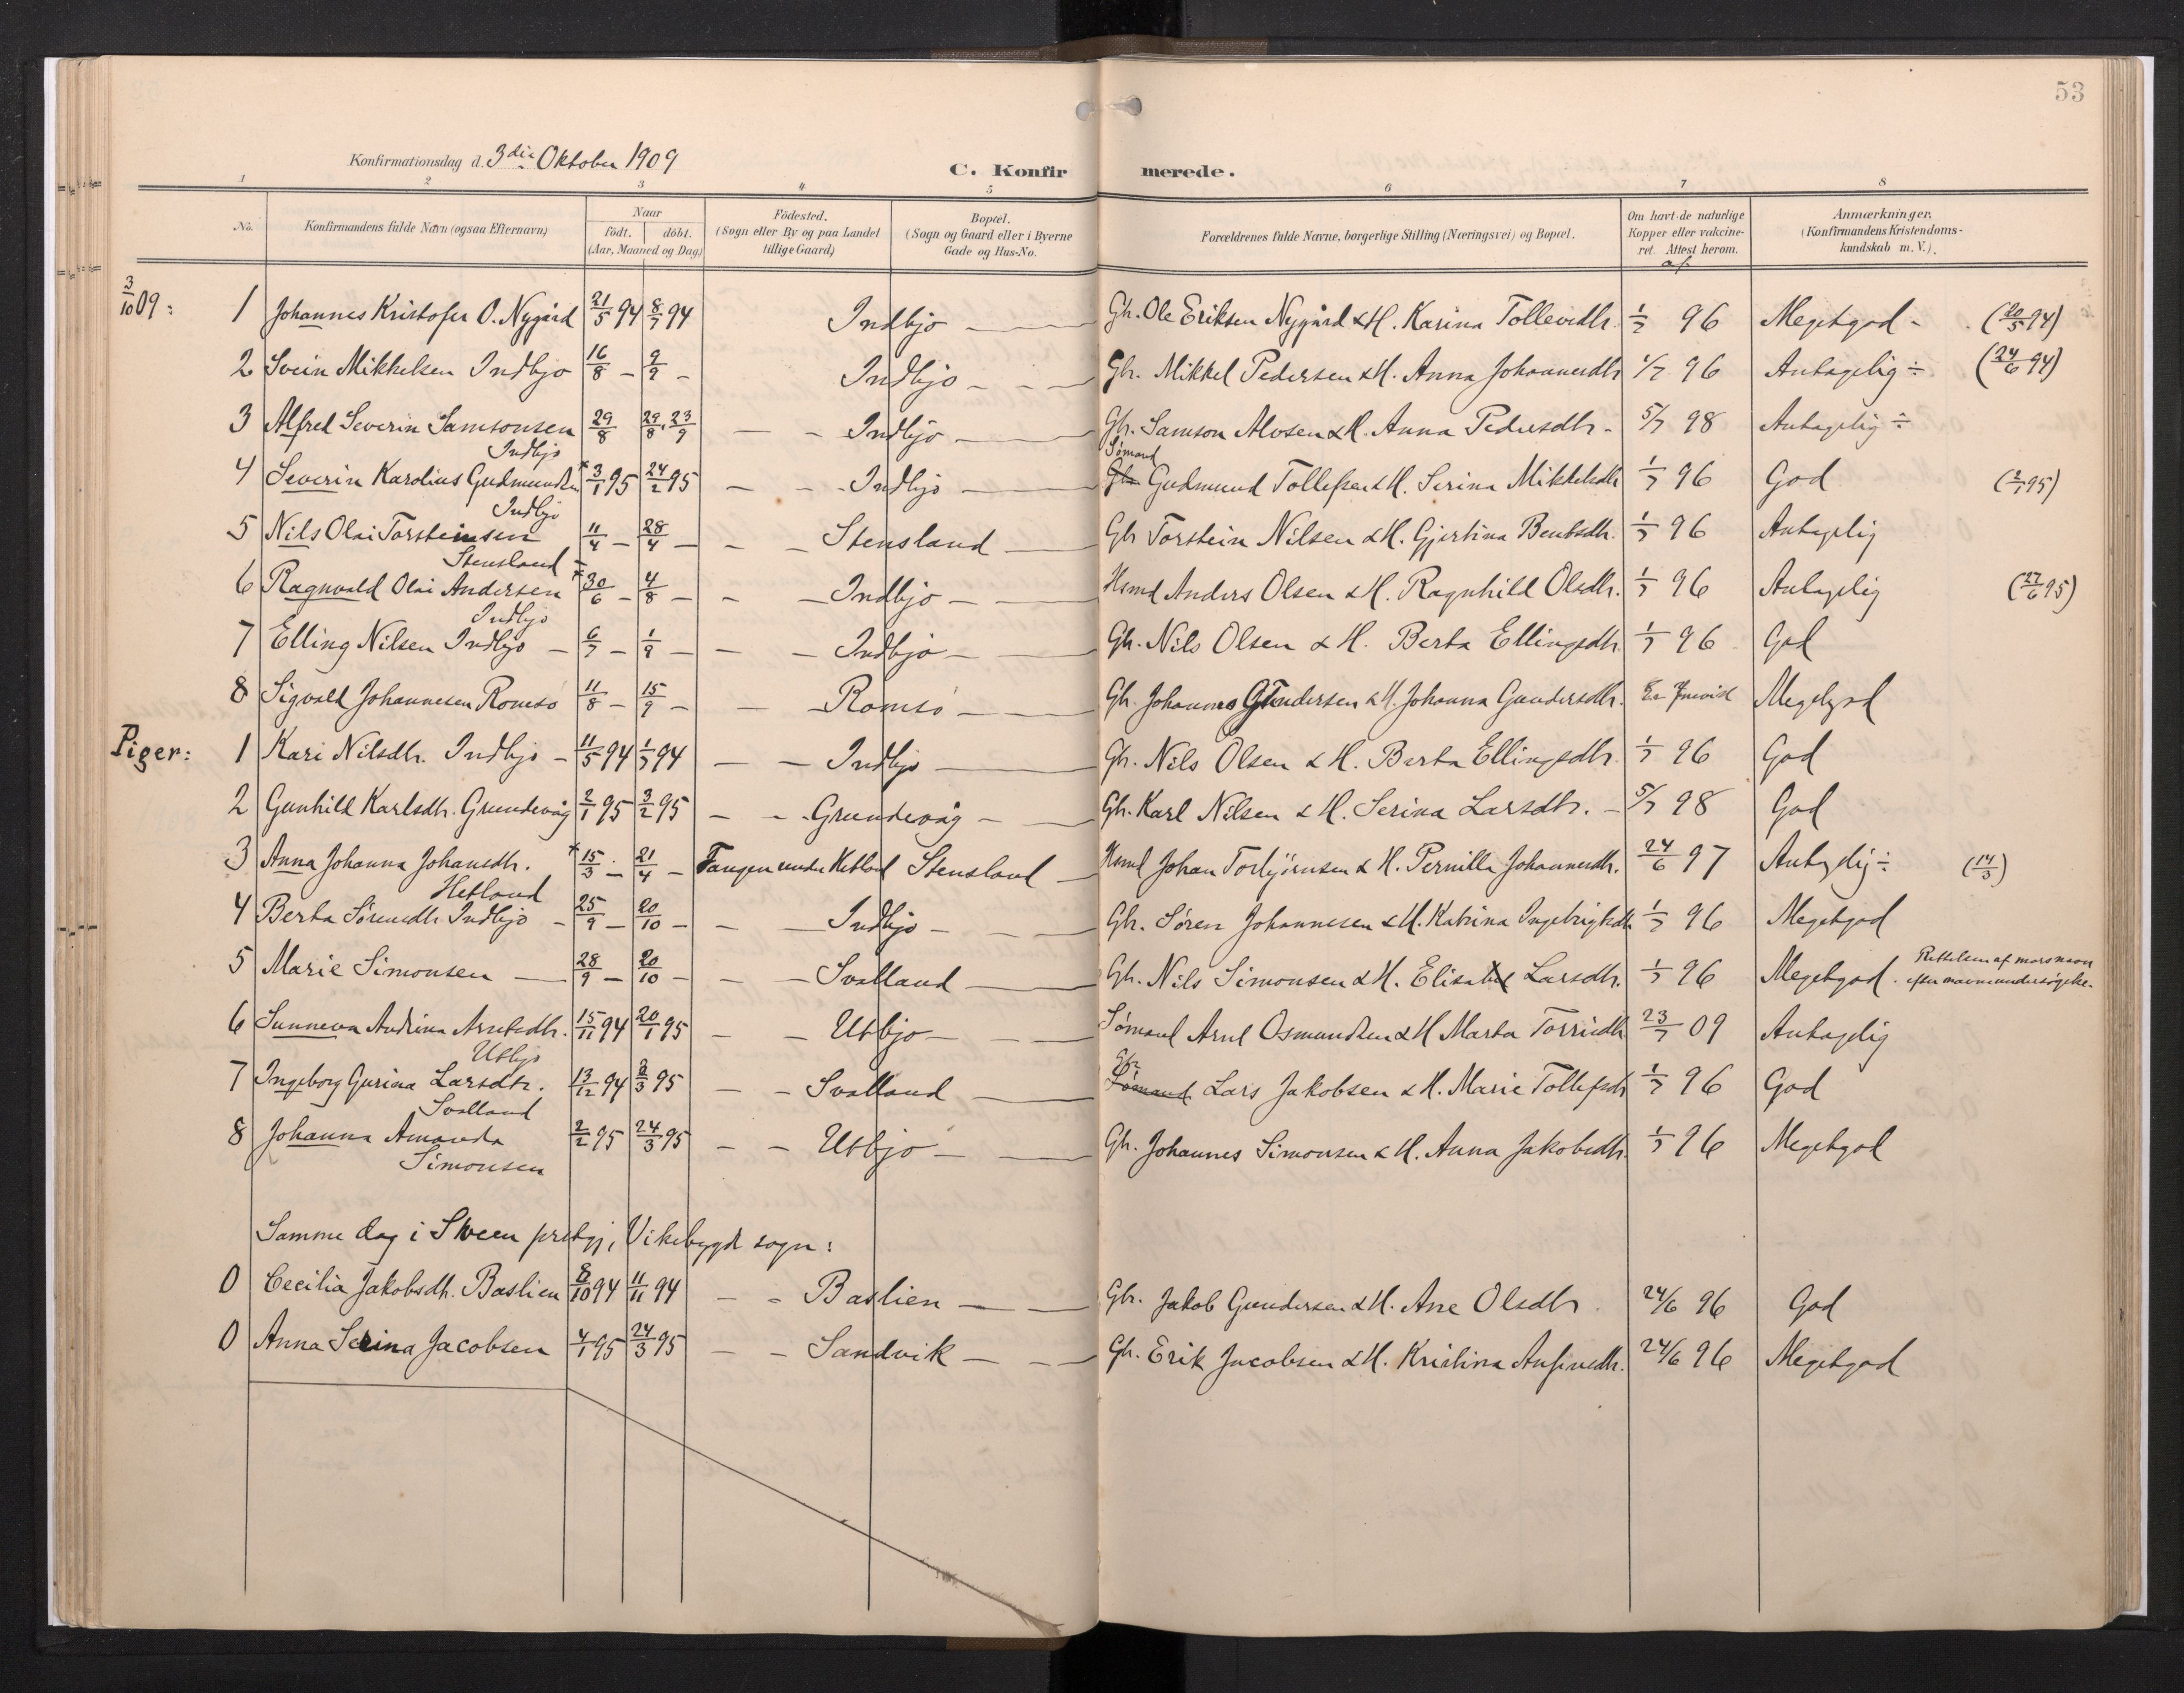 53
Konfirmationsdag d. 3die Oktober 1909
C. Konfirmerede.
1 2 3 4 5 6 7 8
No. Konfirmandens fulde Navn (ogsaa Efternavn) Naar födt. döbt. (Aar, Maaned og Dag) Födested. (Sogn eller By og paa Landet tillige Gaard) Bopæl. (Sogn og Gaard eller i Byerne Gade og Hus-No. Forældrenes fulde Navne, borgerlige Stilling (Næringsvei) og Bopæl. Om havt de naturlige Kopper eller vaccineret. Attest herom. af Anmærkninger. (Konfirmandens Kristendomskundskab m. V.).
3/10 09: 1 Johannes Kristofer O. Nygård 21/5 94 8/7 94 Indbjo Gbr. Ole Eriksen Nygård & H. Karina Tollevsdtr. 1/7 96 Megetgod - (20/5 94)
2 Svein Mikkelsen Indbjo 16/8 - 9/9 - Indbjo - Gbr. Mikkel Pedersen & H. Anna Johannesdtr 1/7 96 Antagelig ÷ (24/6 94)
3 Alfred Severin Samsonsen Indbjo 29/8 29/8, 23/9 - - Indbjo Gbr. Samson Alvsen & H. Anna Pedersdtr - 5/7 98 Antagelig ÷
4 Severin Karolius Gudmundsen Indbjo * 3/1 95 24/2 95 - - Indbjo Sømand Gbr. Gudmund Tollefsen & H. Serina Mikkelsdtr 1/7 96 God (2/1 95)
5 Nils Olai Torsteinsen Stensland 11/4 - 28/4 - - - Stensland Gbr Torstein Nilsen & H. Gjertina Bentsdtr. 1/7 96 Antagelig
6 Ragnvald Olai Andersen Indbjo * 30/6 - 4/8 - - - Indbjo - Hsmd Anders Olsen & H. Ragnhild Olsdtr. 1/7 96 Antagelig (27/6 95)
7 Elling Nilsen Indbjo - 6/7 - 1/9 - - - Indbjo - Gbr. Nils Olsen & H. Berta Ellingsdtr. 1/7 96 God
8 Sigvald Johannesen Romsø 11/8 - 15/9 - - Romsø - Gbr. Johannes Gundersen & H. Johanna Gundersdtr. Megetgod
Piger: 1 Kari Nilsdtr. Indbjo - 11/5 94 1/7 94 - - Indbjo Gbr. Nils Olsen & H. Berta Ellingsdtr. 1/7 96 God
2 Gunhild Karlsdtr. Grundevåg 2/1 95 3/2 95 - - Grundevåg - Gbr. Karl Nilsen & H. Serina Larsdtr. - 5/7 98 God
3 Anna Johanna Johansdtr. Hetland * 15/3 - 21/4 - Tangen under Hetland Stensland Hsmd Johan Torbjørnsen & H. Pernilla Johannesdtr. 24/6 97 Antagelig ÷ (14/3)
4 Berta Sørensdtr Indbjo - 25/9 - 20/10 - - - Indbjo - Gbr. Søren Johannesen & H. Katrina Ingebrigtsdtr 1/7 96 Megetgod
5 Marie Simonsen 28/9 - 20/10 - - - Svolland Gbr. Nils Simonsen & H. Elisabet Larsdtr. 1/7 96 Megetgod. Rettelsen af morsnavn efter navneundersøgelse.
6 Sunneva Andrina Arntsdtr. Utbjo 15/11 94 20/1 95 - - Utbjo - Sømand Arnt Osmundsen & H Marta Torrisdtr 23/7 09 Antagelig
7 Ingeborg Gurina Larsdtr. Svolland 13/12 94 3/3 95 - - Svolland Gbr Sømand Lars Jakobsen & H. Marie Tollefsdtr 1/7 96 God
8 Johanna Amanda Simonsen 2/2 95 24/3 95 - - Utbjo - Gbr. Johannes Simonsen & H. Anna Jakobsdtr. 1/7 96 Megetgod
Samme dag i Skveen prstgj, Vikebygd sogn:
0 Cecilia Jakobsdtr. Baslien 8/10 94 11/11 94 - - Baslien Gbr. Jakob Gundersen & H. Ane Olsdtr 24/6 96 God
0 Anna Serina Jacobsen 4/1 95 24/3 95 - - Sandvik Gbr. Erik Jacobsen & H. Kristina Anfinsdtr. 24/6 96 Megetgod